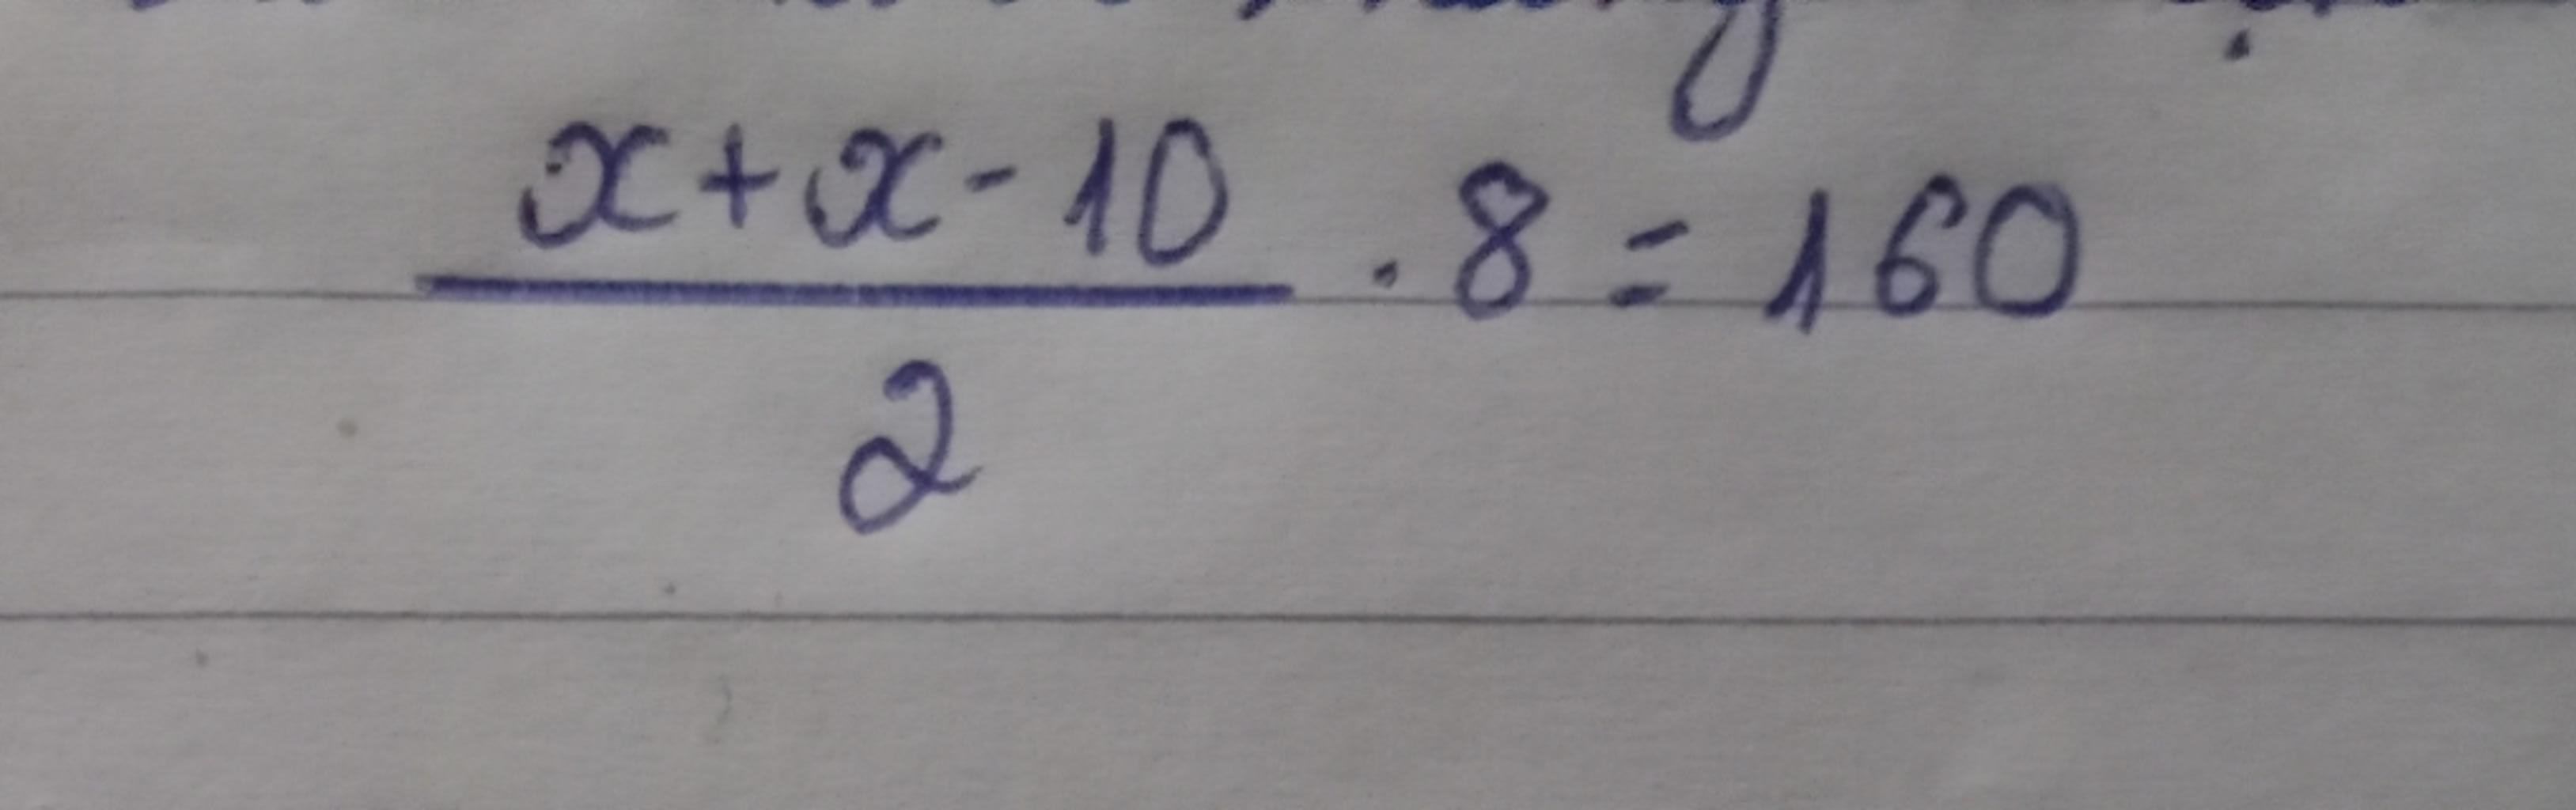 x+x-10 / 2 . 8 = 160